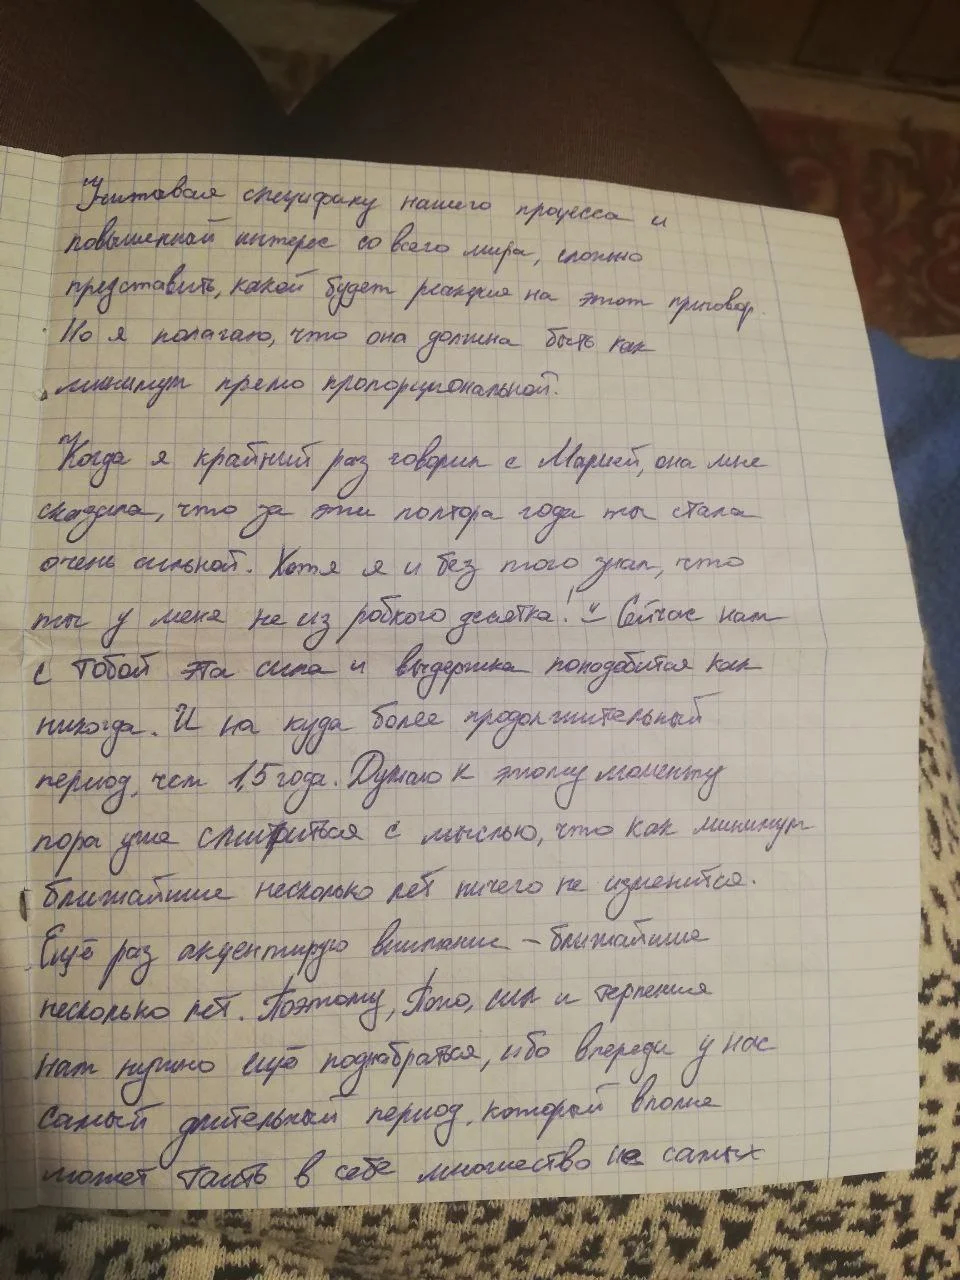 Учитывая специфику нашего процесса и
повышенный интерес со всего мира, сложно
представить, какой будет реакция на этот приговор.
Но я полагаю, что она должна быть как
минимум прямо пропорциональной.
Когда я крайний раз говорил с Марией, она мне
сказала, что за эти полтора года ты стала
очень сильной. Хотя я и без того знал, что
ты у меня не из робкого десятка! Сейчас нам
с тобой эта сила и выдержка понадобится как
никогда. И на куда более продолжительный
период, чем 1,5 года. Думаю к этому моменту
пора уже смириться с мыслью, что как минимум
ближайшие несколько лет ничего не изменится.
Ещё раз акцентирую внимание – ближайшие
несколько лет. Поэтому, сил и терпения
нам нужно ещё поднабраться, ибо впереди у нас
самый длительный период, который вполне
может таить в себе множество не самых